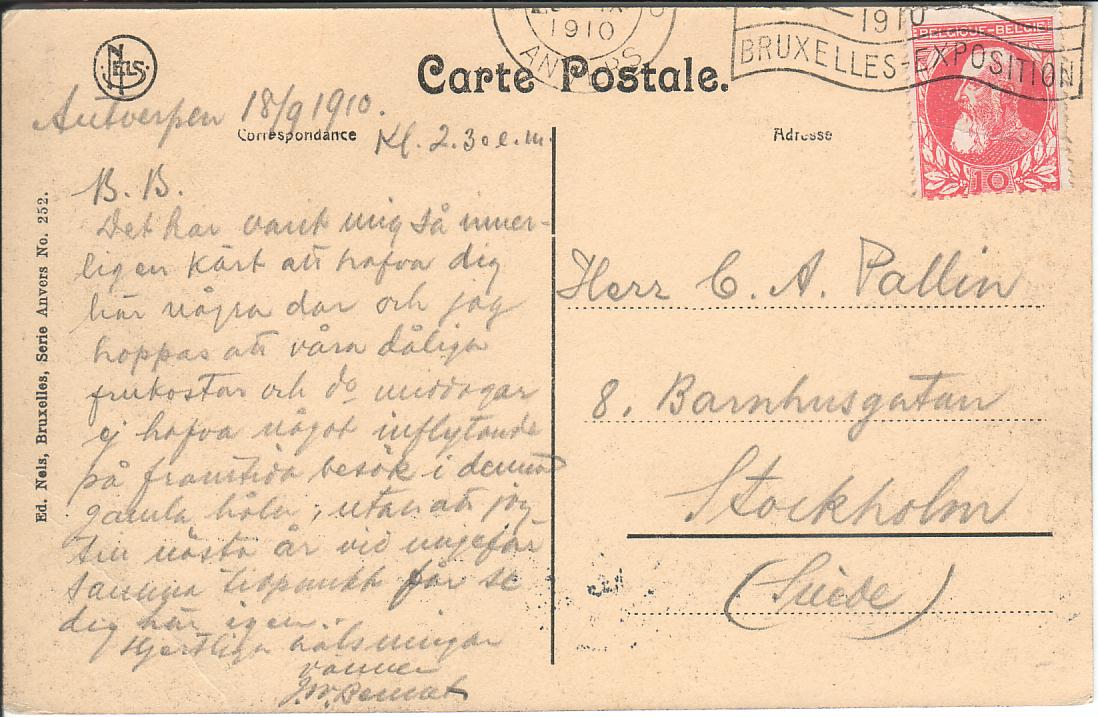 NELS.
1910
ANVERS
1910
BRUXELLES-EXPOSITION
BELGIQUE-BELGIE
10
Carte Postale.
Correspondance
Adresse
Ed. Nels, Bruxelles, Serie Anvers No. 252.
Antverpen 18/9 1910.
Kl. 2.30 e.m.
B. B.
Det har varit mig så inner-
ligen kärt att hafva dig
här några dar och jag
hoppas att våra dåliga
frukostar och do middagar
ej hafva något inflytande
på framtida besök i denna
gamla håla, utan att jag
till nästa år vid ungefär
samma tidpunkt får se
dig här igen.
Hjertliga hälsningar
vännen
Herr C. A. Pallin
8. Barnhusgatan
Stockholm
(Suède)